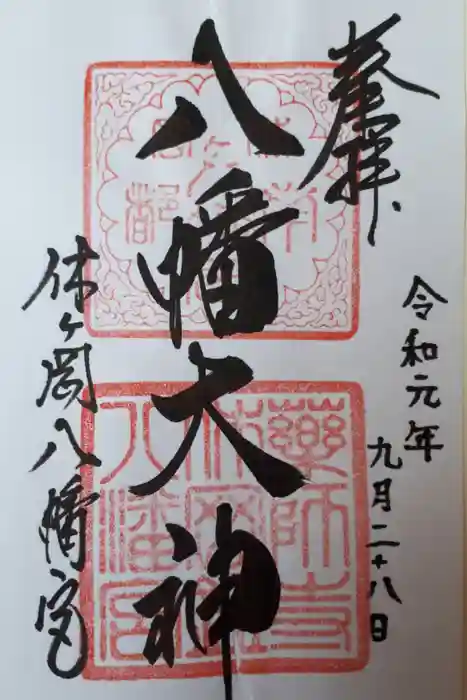 奉拝
令和元年
九月二十八日
八幡大神
休ヶ岡八幡宮
薬師寺
休岡
八幡宮